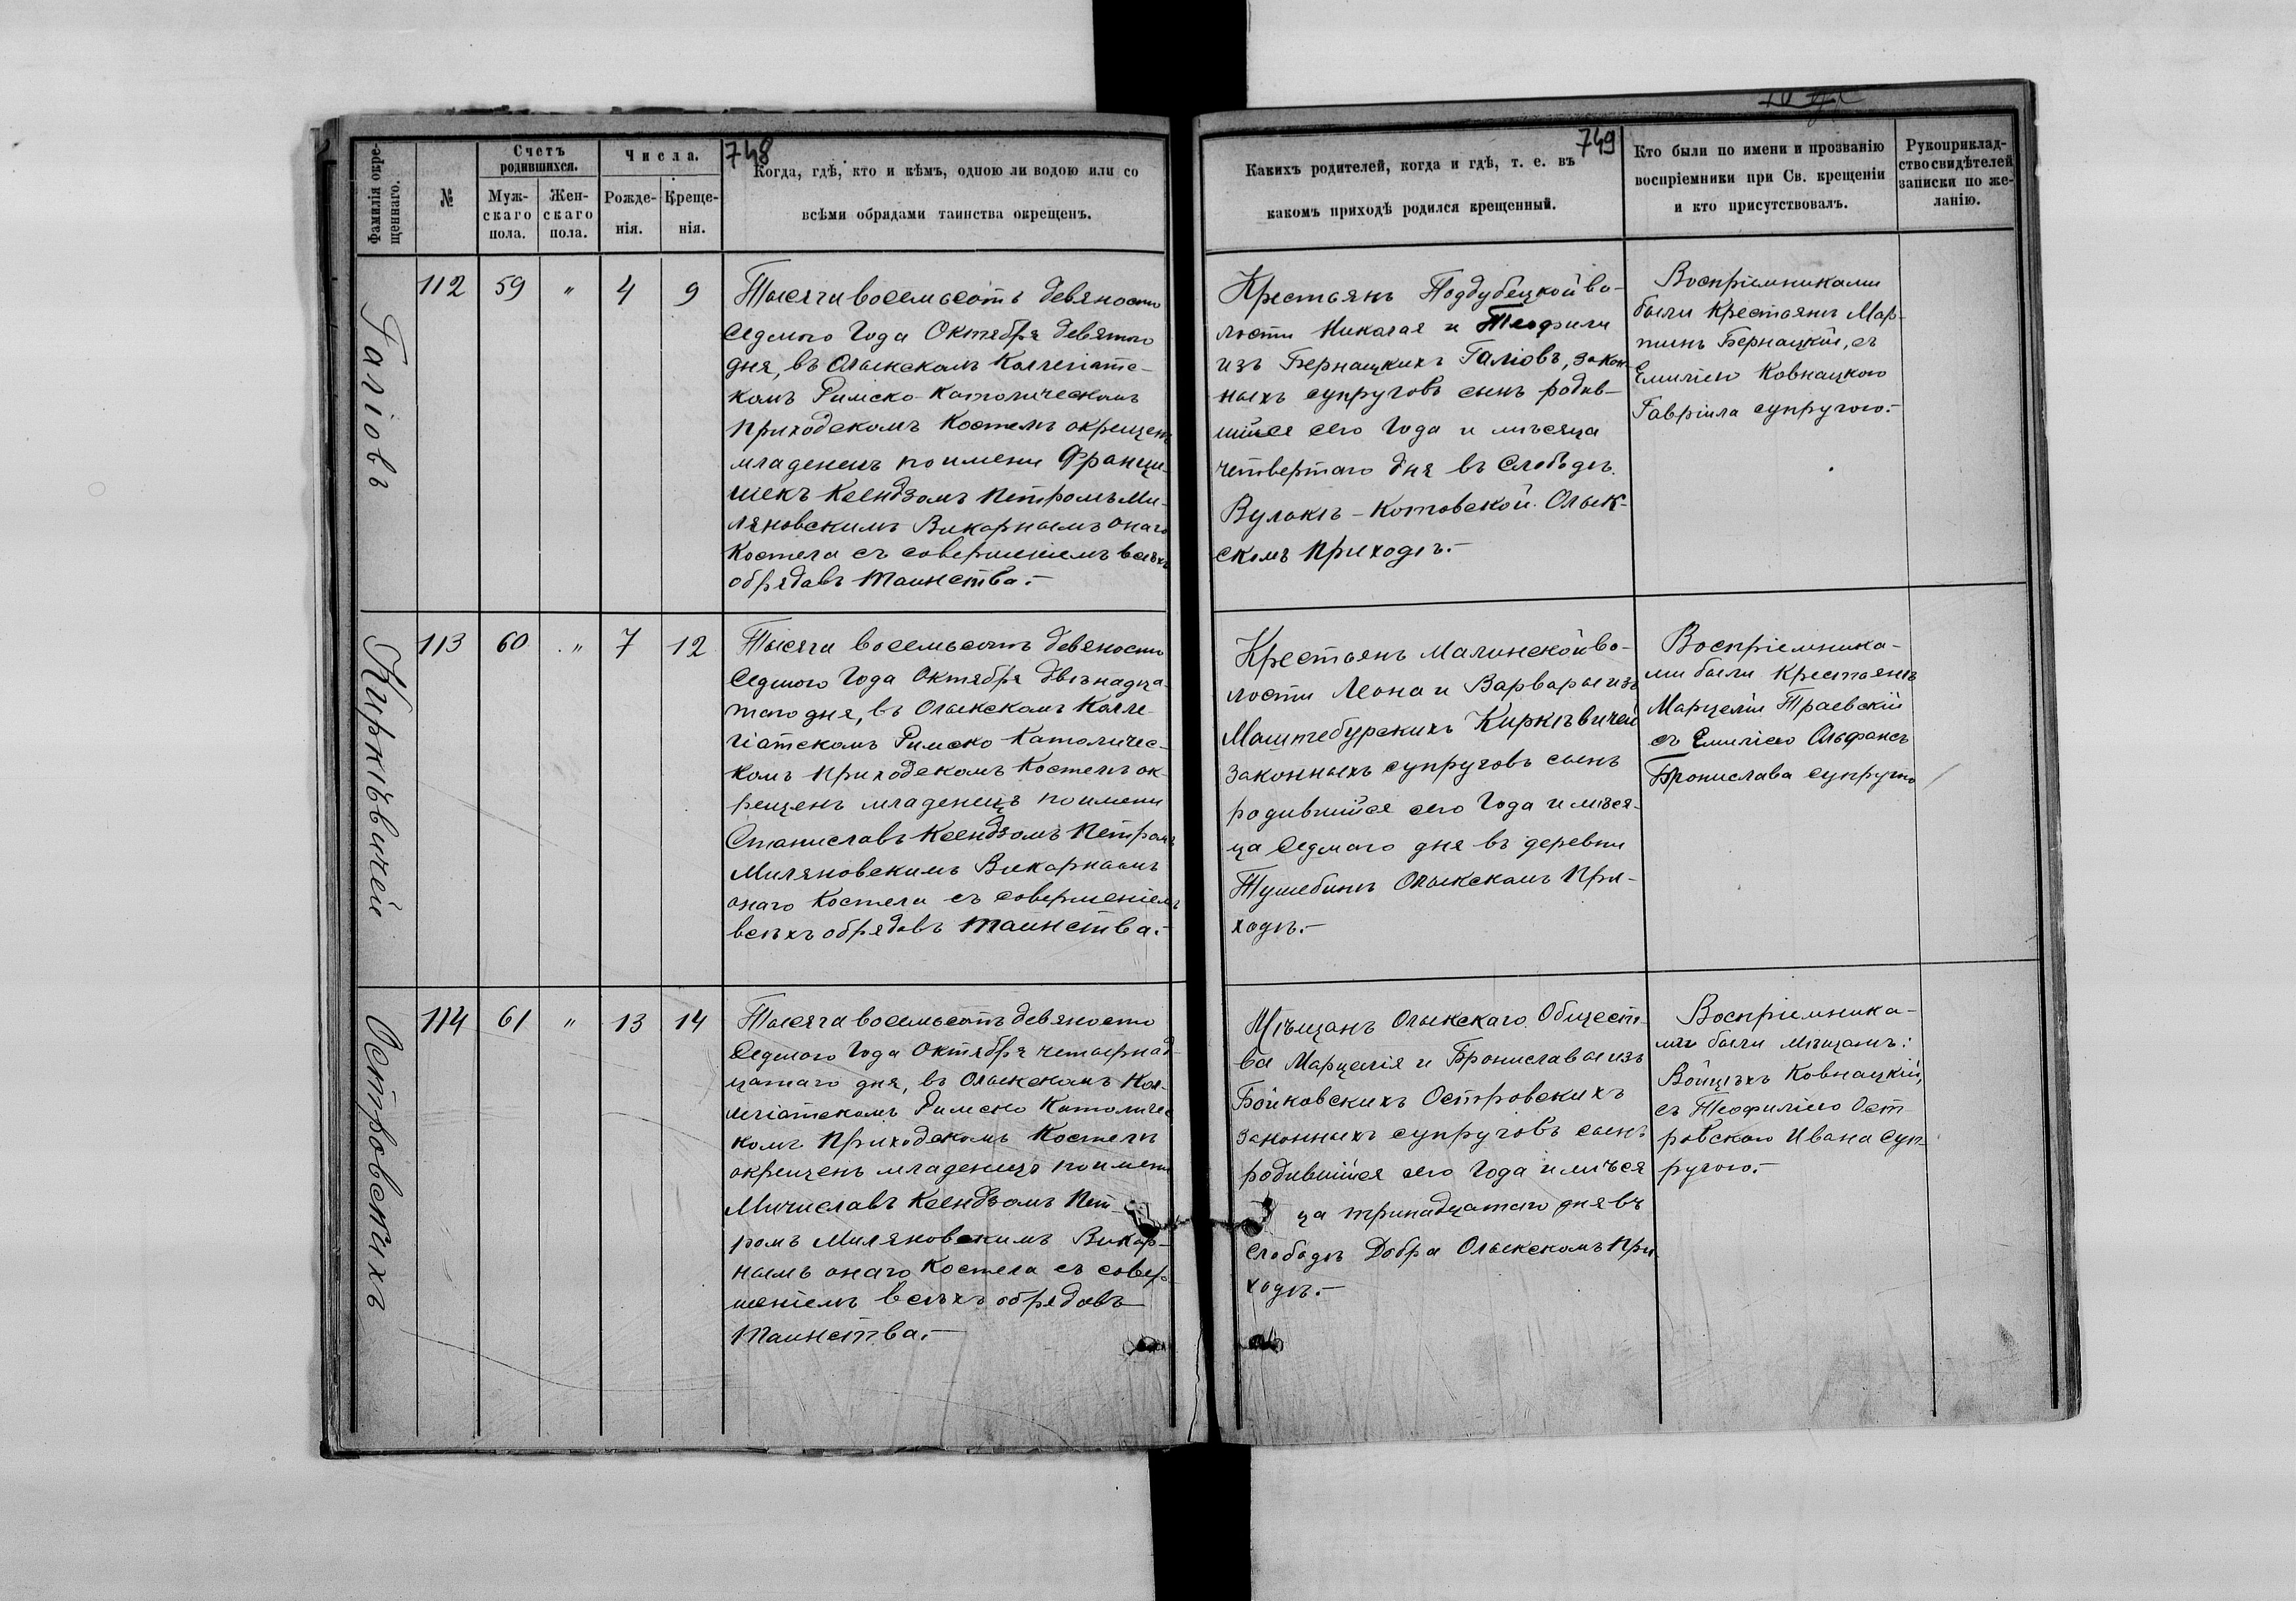 748
Фамилія окре-
щеннаго.
№
Счетъ
родившихся.
Муж-
скаго
пола.
Жен-
скаго
пола.
Числа.
Рожде-
нія.
Креще-
нія.
Когда, гдѣ, кто и кѣмъ, одною ли водою или со
всѣми обрядами таинства окрещенъ.
Галіовъ
112 59 " 4 9
Тысяча восемьсотъ девяносто
Седмого Года Октября девятого
дня, въ Олыкскомъ Коллегіатс-
комъ Римско-Католическомъ
Приходскомъ Костелѣ окрещенъ
младенецъ по имени Францы-
шекъ Ксендзомъ Петромъ Ми-
ляновскимъ Викарнымъ онаго
Костела съ совершеніемъ всѣхъ
обрядовъ Таинства.-
Киркѣвичей
113 60 " 7 12
Тысяча восемьсотъ девяносто
Седмого Года Октября двѣнадца-
таго дня, въ Олыкскомъ Колле-
гіатскомъ Римско Католичес-
комъ Приходскомъ Костелѣ ок-
рещенъ младенецъ по имени
Станиславъ Ксендзомъ Петромъ
Миляновскимъ Викарнымъ
онаго Костела съ совершеніемъ
всѣхъ обрядовъ Таинства.-
Островскихъ
114 61 " 13 14
Тысяча восемьсотъ девяносто
Седмого Года Октября четырнад-
цатаго дня, въ Олыкскомъ Кол-
легіатскомъ Римско Католичес
комъ Приходскомъ Костелѣ
окрещенъ младенецъ по имени
Мичиславъ Ксендзомъ Пет-
ромъ Миляновскимъ Викар-
нымъ онаго Костела съ совер-
шеніемъ всѣхъ обрядовъ
Таинства.-
749
Какихъ родителей, когда и гдѣ, т. е. въ
какомъ приходѣ родился крещенный.
Кто были по имени и прозванію
воспріемники при Св. крещеніи
и кто присутствовалъ.
Рукоприклад-
ство свидѣтелей
записки по же-
ланію.
Крестьянъ Поддубецкой во-
лости Николая и Теофили
изъ Бернацкихъ Галіовъ, закон-
ныхъ супруговъ сынъ родив-
шійся сего Года и мѣсяца
четвертаго дня въ Слободѣ
Вулькѣ-Котовской Олык-
скомъ Приходѣ.-
Воспріемниками
были Крестьянъ Мар-
тинъ Бернацкій, съ
Емиліею Ковнацкого
Гавріила супругою.-
Крестьянъ Малинской во-
лости Леона и Варвары изъ
Маштебурскихъ Киркѣвичей
законныхъ супруговъ сынъ
родившійся сего Года и мѣся-
ца Седмаго дня въ деревни
Тушебинѣ Олыкскомъ При-
ходѣ.-
Воспріемника-
ми были Крестьянъ
Марцелій Траевскій
съ Емиліею Ольфансъ
Бронислава супругою
Мѣщанъ Олыкскаго Общест-
ва Марцелія и Брониславы изъ
Бойковскихъ Островскихъ
законныхъ супруговъ сынъ
родившійся сего Года и мѣся
ца тринадцатаго дня въ
Слободѣ Добра Олыкскомъ При
ходѣ.-
Воспріемника-
ми были мѣщанъ:
Войцѣхъ Ковнацкій,
съ Теофиліею Ост
ровского Ивана суп-
ругою.-